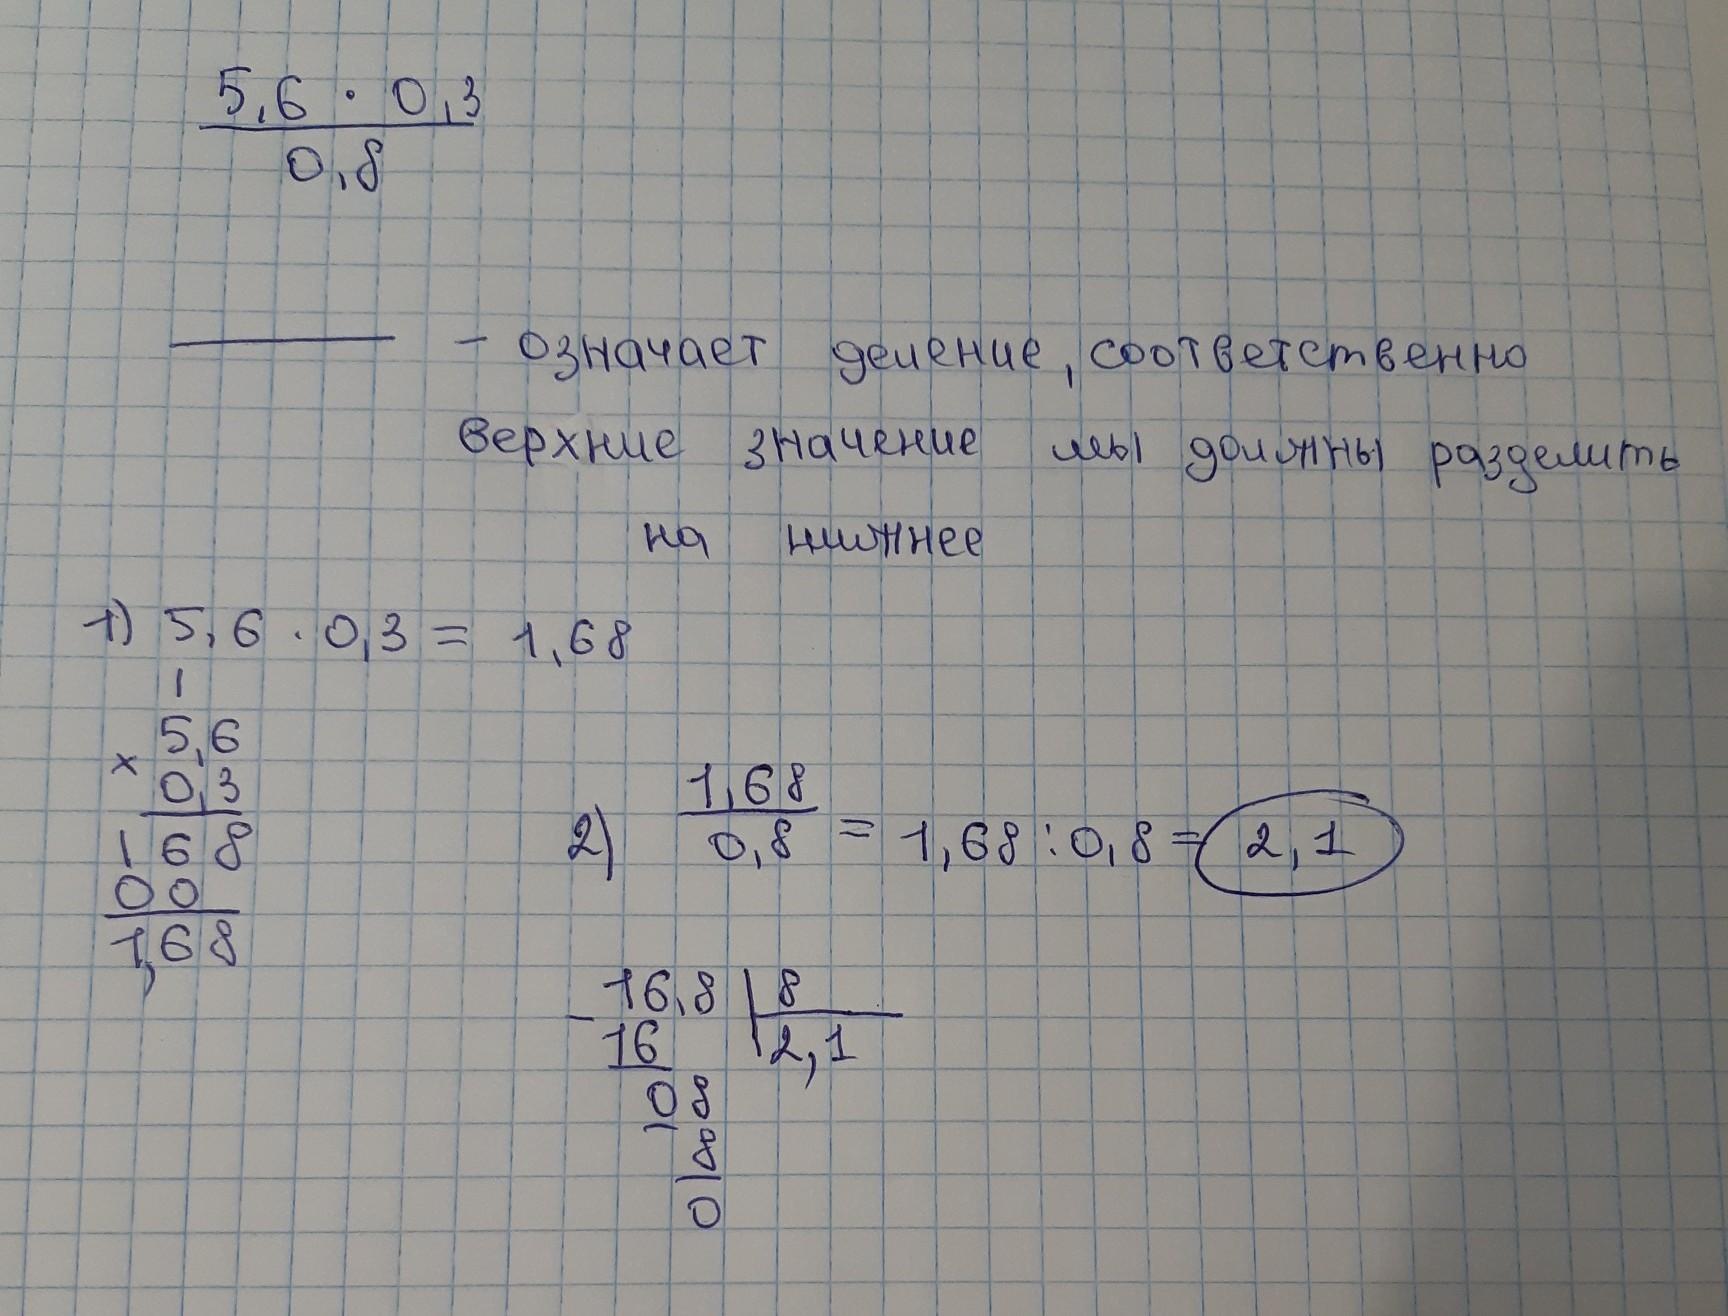 5,6 · 0,3
0,8
— означает деление, соответственно
верхние значение мы должны разделить
на нижнее
1) 5,6 · 0,3 = 1,68
1
5,6
×
0,3
168
00
1,68
2) 1,68
0,8 = 1,68 : 0,8 = 2,1
- 16,8 | 8
16 2,1
08
8
0